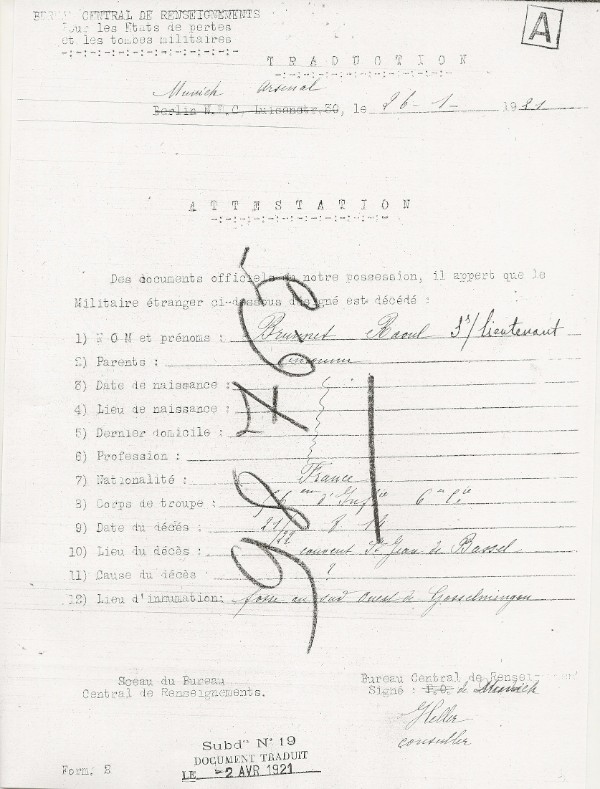 BUREAU CENTRAL DE RENSEIGNEMENTS
pour les Etats de pertes
et les tombes militaires
A
TRADUCTION
Munich Arsenal
Berlin N.W.6, Luisenstr.30, le 26-1- 1921
ATTESTATION
Des documents officiels en notre possession, il appert que le
Militaire étranger ci-dessous désigné est décédé :
1) NOM et prénoms : Brunnet Raoul lieutenant
2) Parents : inconnu
3) Date de naissance :
4) Lieu de naissance :
5) Dernier domicile :
6) Profession :
7) Nationalité : France
8) Corps de troupe : d'Inf 6e Cie
9) Date du décès : 21/22 8 14
10) Lieu du décès : couvent St Jean de Bassel
11) Cause du décès ?
12) Lieu d'inhumation: fosse au sud Ouest de Gosselmingen
98 765
Sceau du Bureau
Central de Renseignements.
Bureau Central de Renseignements
Signé : P.O. de Munich
Heller
conseiller
Subdon N° 19
DOCUMENT TRADUIT
LE -2 AVR 1921
Form. E